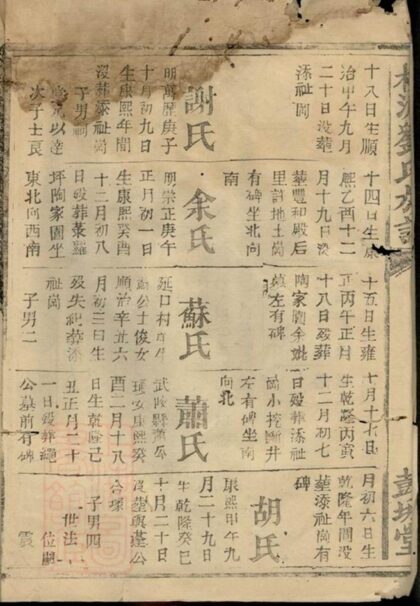 劉氏族譜
彭城堂
十八日生順
治甲午九月
二十日没葬
添祉岡
謝氏
明萬歷庚子
十月初九日
生康熙年間
沒葬添祉岡
子男嗣
以達
次子士良
十四日生康
熙乙酉十二
月十九日没
葬豐和殿后
里許地土岡
有碑坐北向
南
余氏
明崇正庚午
正月初一日
生康熙癸酉
十二月初八
日殁葬蔡羅
坪陶家園坐
東北向西南
十五日生雍
正丙午正月
十八日殁葬
陶家園余妣
墓左有碑
蘇氏
延口村
公士俊女
順治辛丑六
月初三日生
殁失紀葬添
祉崗
子男二
十月十六日
生乾隆丙寅
十二月初七
日殁葬添祉
崗小挖圖井
左有碑坐南
向北
蕭氏
武陵縣蕭公
女康熙癸
酉二月十八
日生乾隆己
丑正月二十
一日殁葬繩
公墓前有碑
月初六日生
乾隆年間没
葬添祉崗有
碑
胡氏
康熙甲午九
月二十九日
生乾隆癸巳
十月二十日
没葬與公
合塚
子男四
世法
位嗣
震